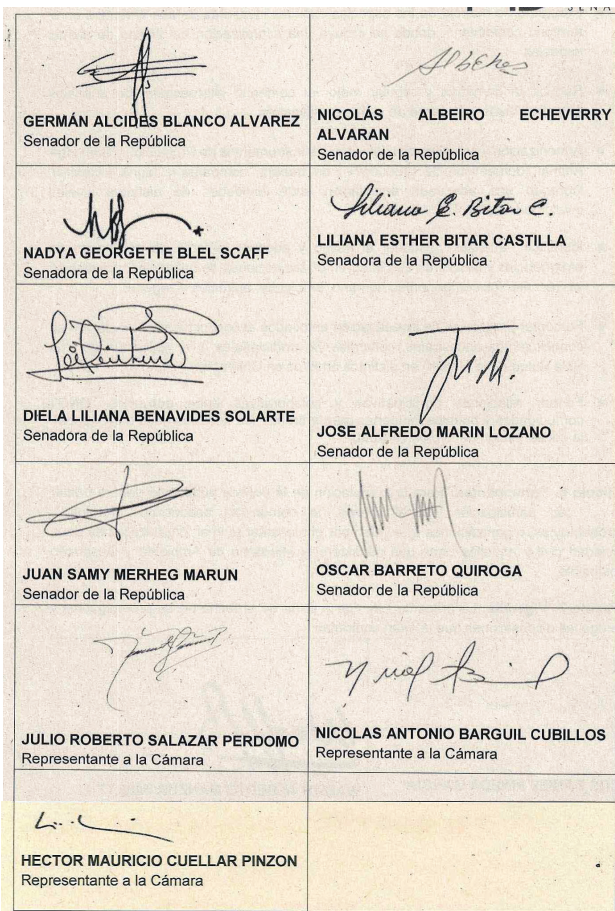 SENA
GERMÁN ALCIDES BLANCO ALVAREZ
Senador de la República
NICOLÁS ALBEIRO ECHEVERRY
ALVARAN
Senador de la República
NADYA GEORGETTE BLEL SCAFF
Senadora de la República
Liliana E. Bitar C.
LILIANA ESTHER BITAR CASTILLA
Senadora de la República
DIELA LILIANA BENAVIDES SOLARTE
Senadora de la República
JOSE ALFREDO MARIN LOZANO
Senador de la República
JUAN SAMY MERHEG MARUN
Senador de la República
OSCAR BARRETO QUIROGA
Senador de la República
JULIO ROBERTO SALAZAR PERDOMO
Representante a la Cámara
NICOLAS ANTONIO BARGUIL CUBILLOS
Representante a la Cámara
HECTOR MAURICIO CUELLAR PINZON
Representante a la Cámara